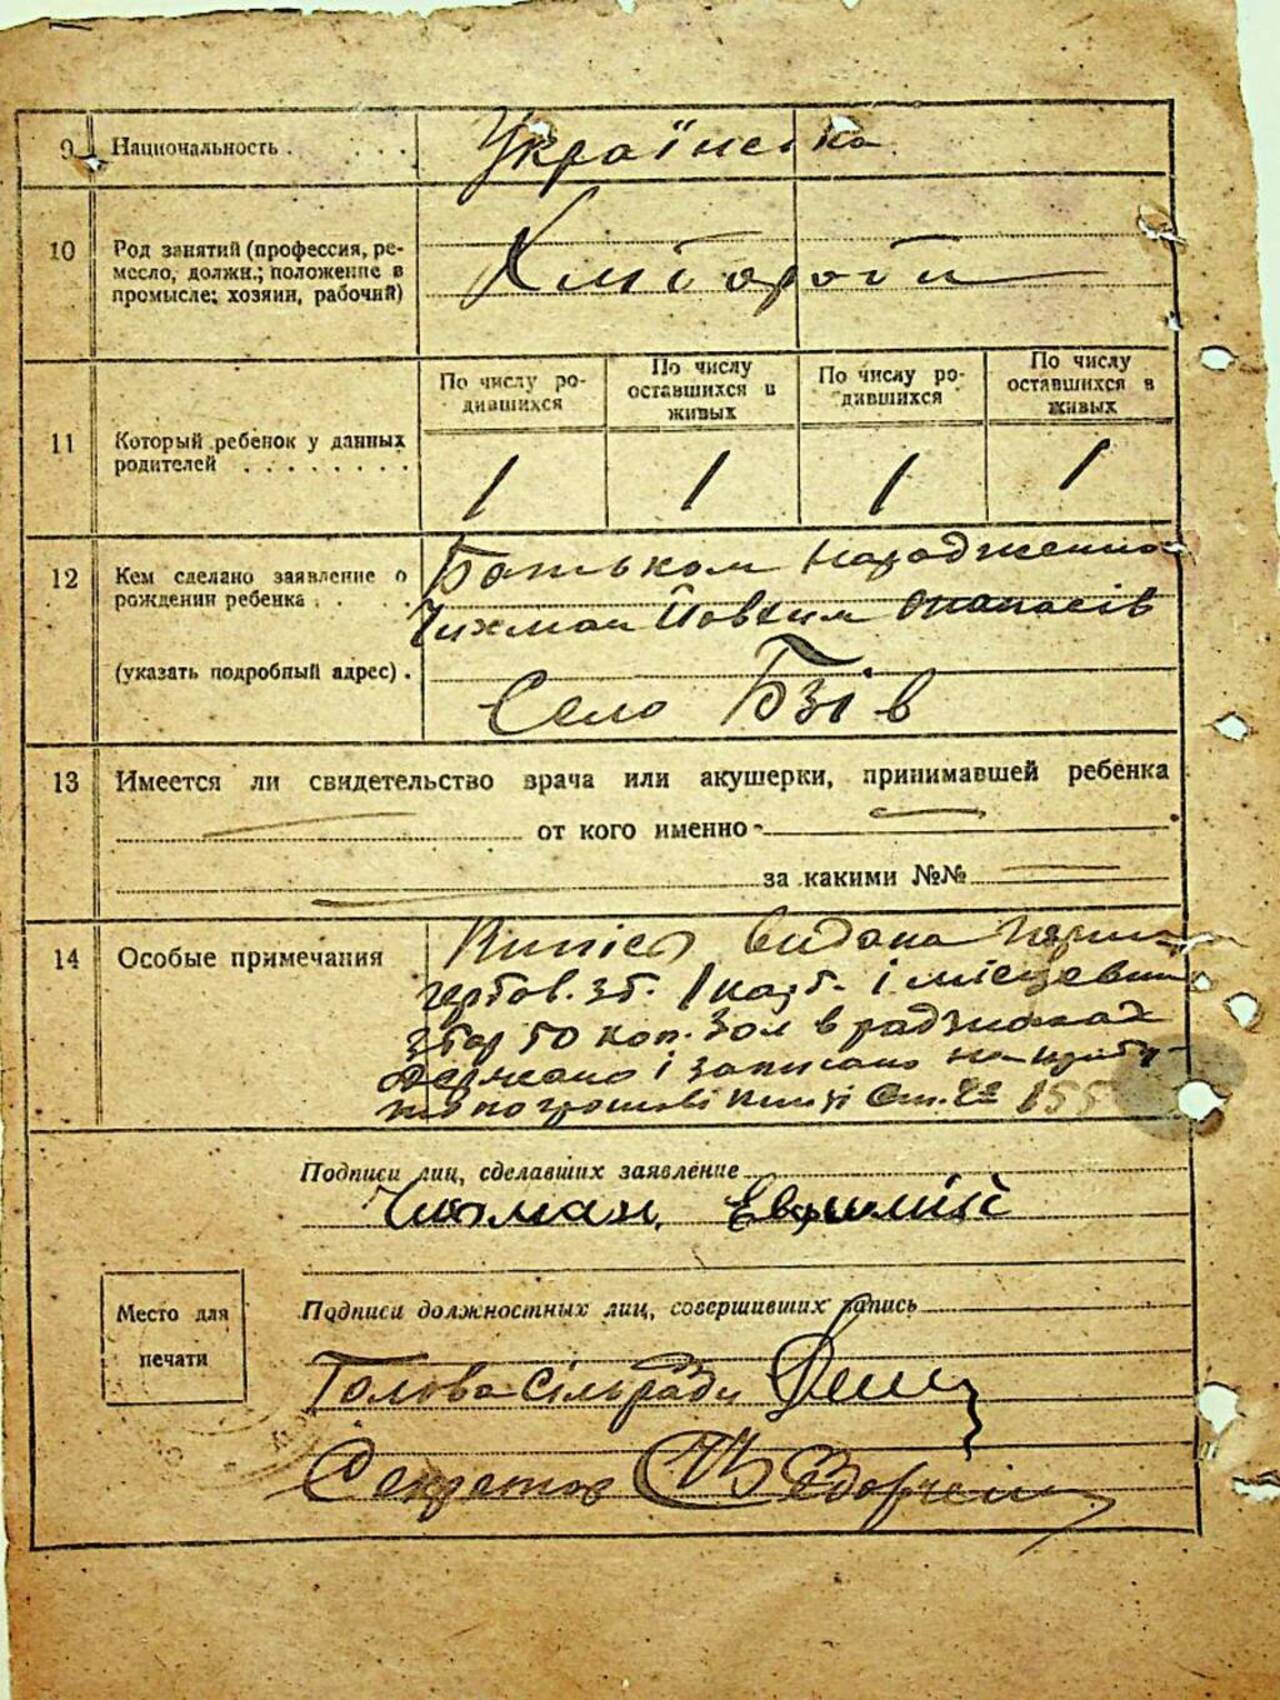 9 Национальность . . . . . Українська
10 Род занятий (профессия, ре-
месло, должн.; положение в
промысле; хозяин, рабочий)
Хлібороби
По числу ро-
дившихся
По числу
оставшихся в
живых
По числу ро-
дившихся
По числу
оставшихся в
живых
11 Который ребенок у данных
родителей . . . . . . . .
1 1 1 1
12 Кем сделано заявление о
рождении ребенка . . . .
(указать подробный адрес) .
Батьком народженно
Опанасів
Село Бзів
13 Имеется ли свидетельство врача или акушерки, принимавшей ребенка
от кого именно
за какими №№
14 Особые примечания
видана
гербов. зб. 1 карб. і місцевий
збор 50 коп.
і записано на
Ст. № 155
Подписи лиц, сделавших заявление
Чихман
Место для
печати
Подписи должностных лиц, совершивших запись
Голова Сільради
Секретар